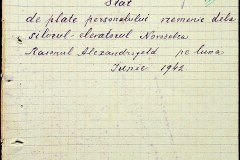 Stat
de plate personalului vremenic dela
silozul-elevatorul Novoselca
Raionul Alexandrfeld pe luna
Iunie 1942